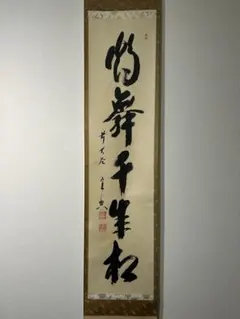 鶴舞千年松
前大徳